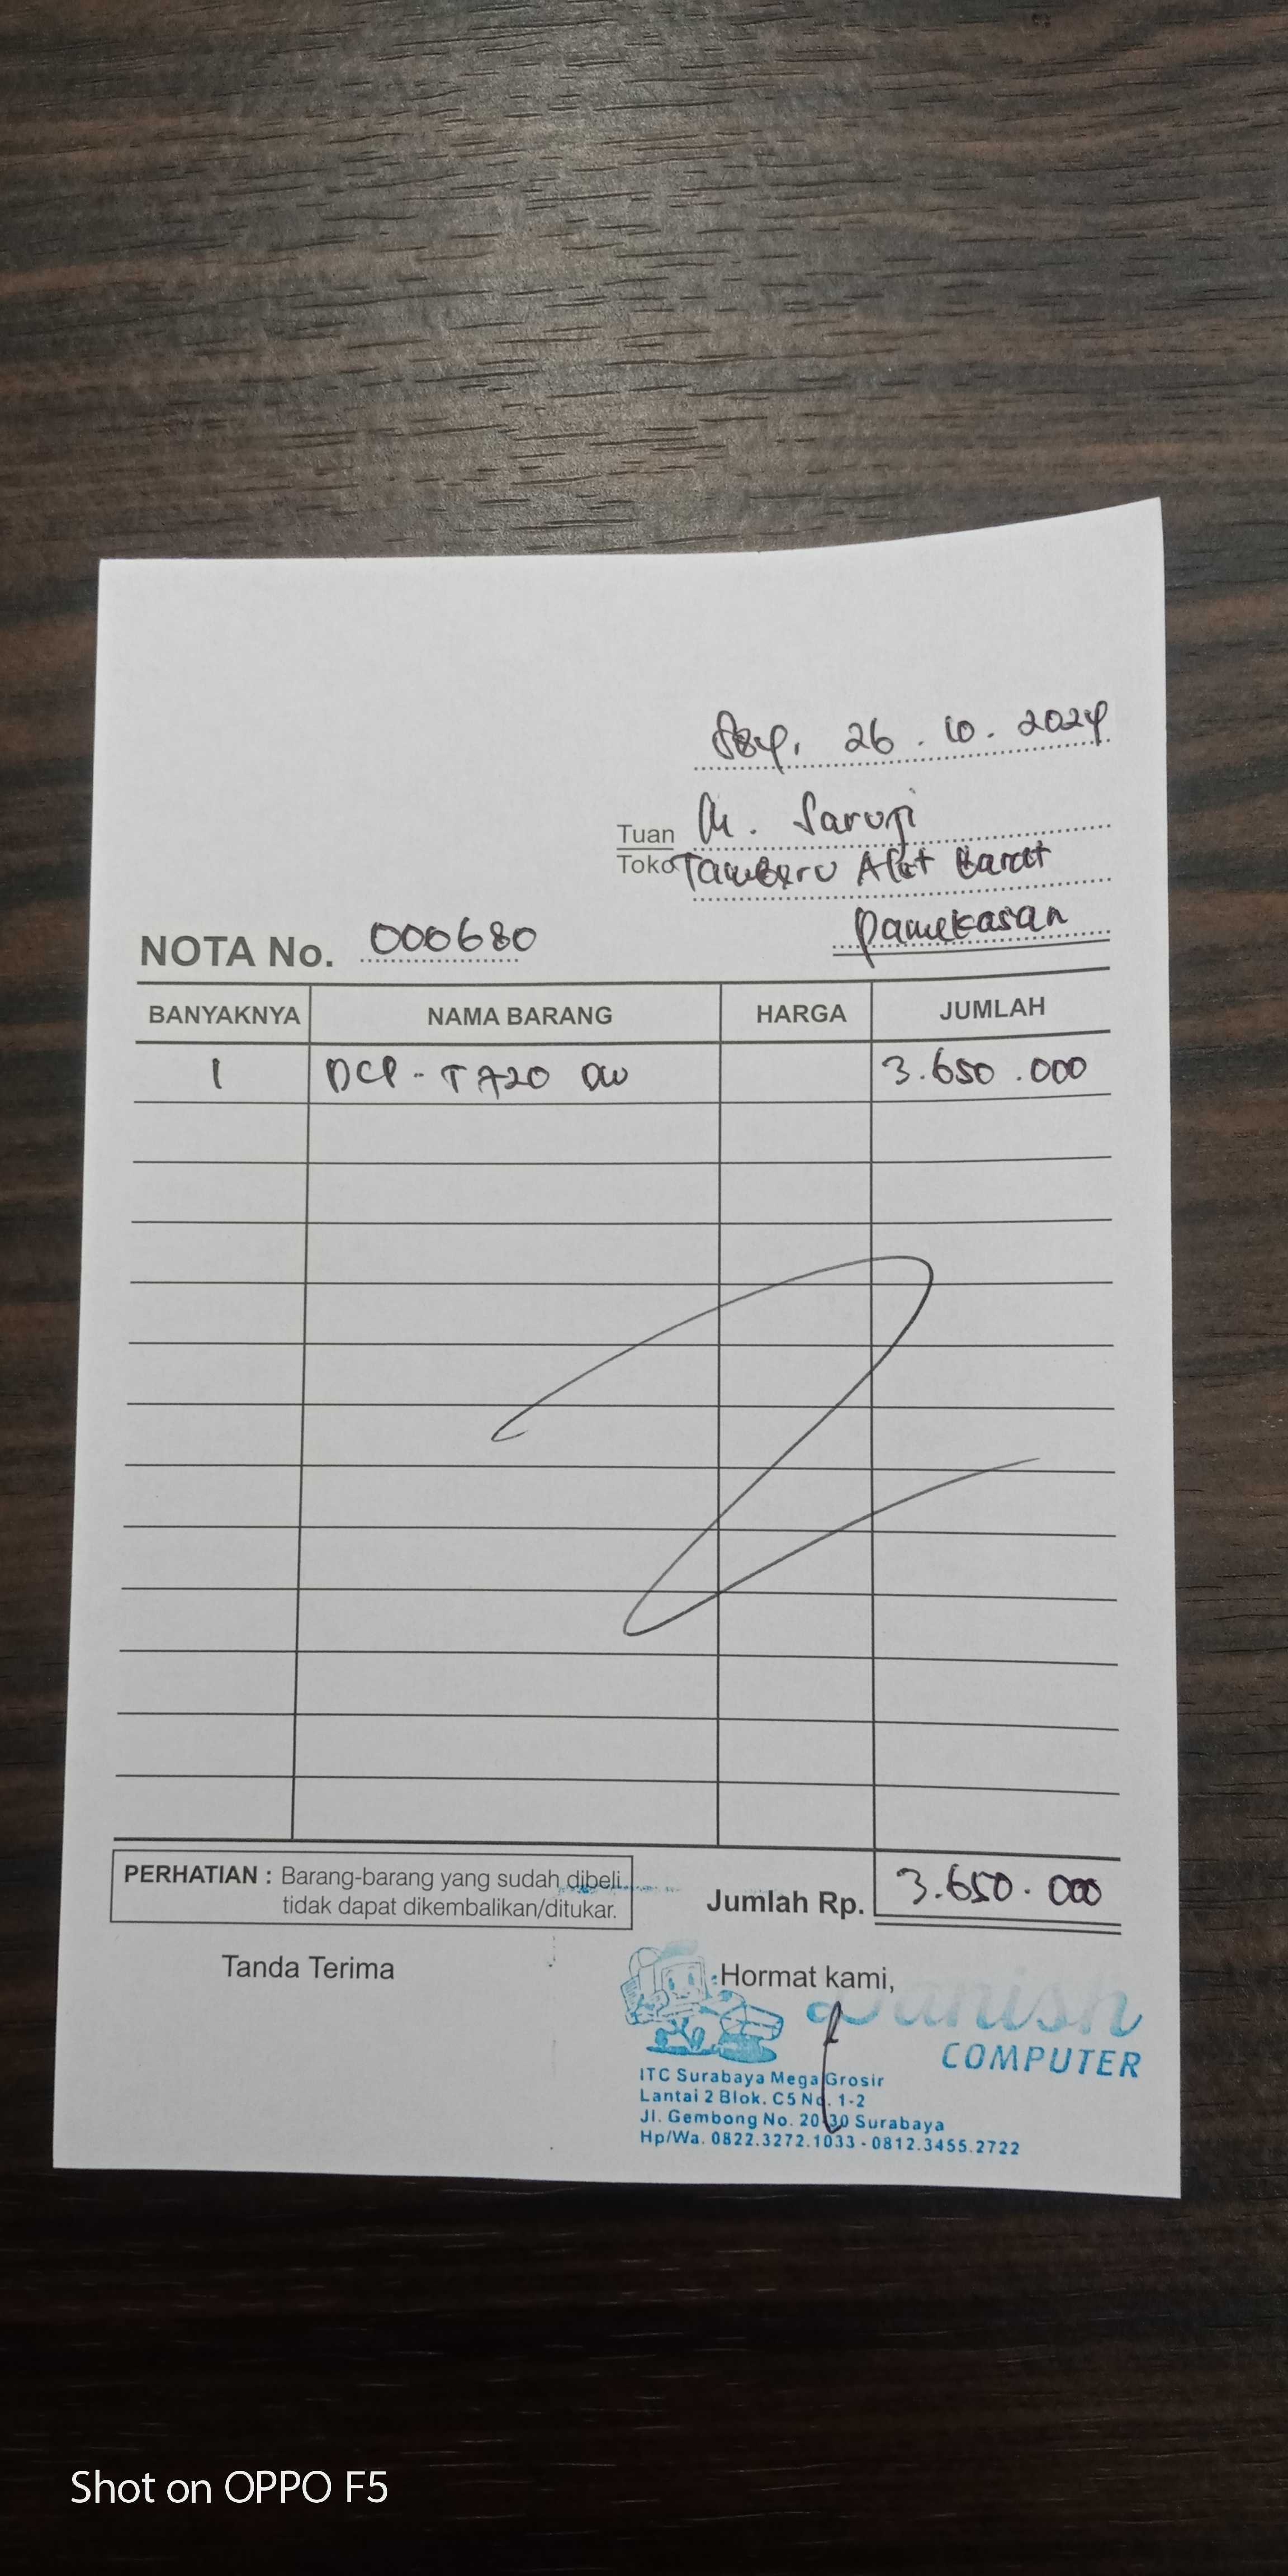 Sby, 26 . 10 . 2024
Tuan M. Saruji
Toko Tamberu Alet Barat
Pamekasan
NOTA No. 000680
BANYAKNYA NAMA BARANG HARGA JUMLAH
1 DCP - T720 DW 3.650.000
PERHATIAN : Barang-barang yang sudah dibeli
tidak dapat dikembalikan/ditukar.
Jumlah Rp. 3.650.000
Tanda Terima
Hormat kami,
Danish
COMPUTER
ITC Surabaya Mega Grosir
Lantai 2 Blok. C5 No. 1-2
Jl. Gembong No. 20-30 Surabaya
Hp/Wa. 0822.3272.1033 - 0812.3455.2722
Shot on OPPO F5